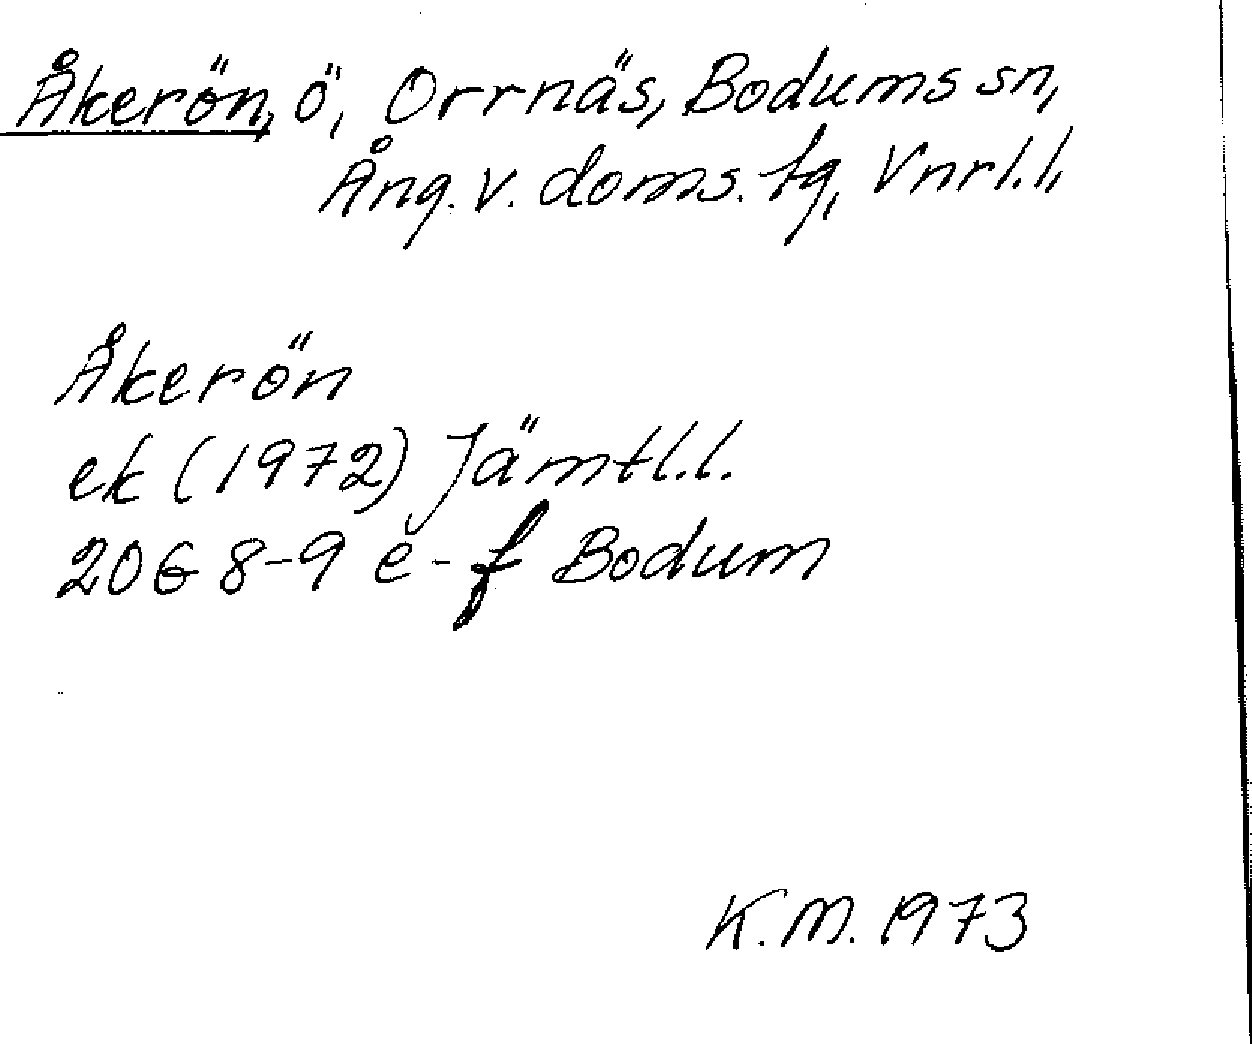 Åkerön, ö, Orrnäs, Bodums sn,
Ång. v. doms. tg, Vnrl. l.
Åkerön
ek (1972) Jämtl. l.
20G 8-9 e-f Bodum
K.M. 1973